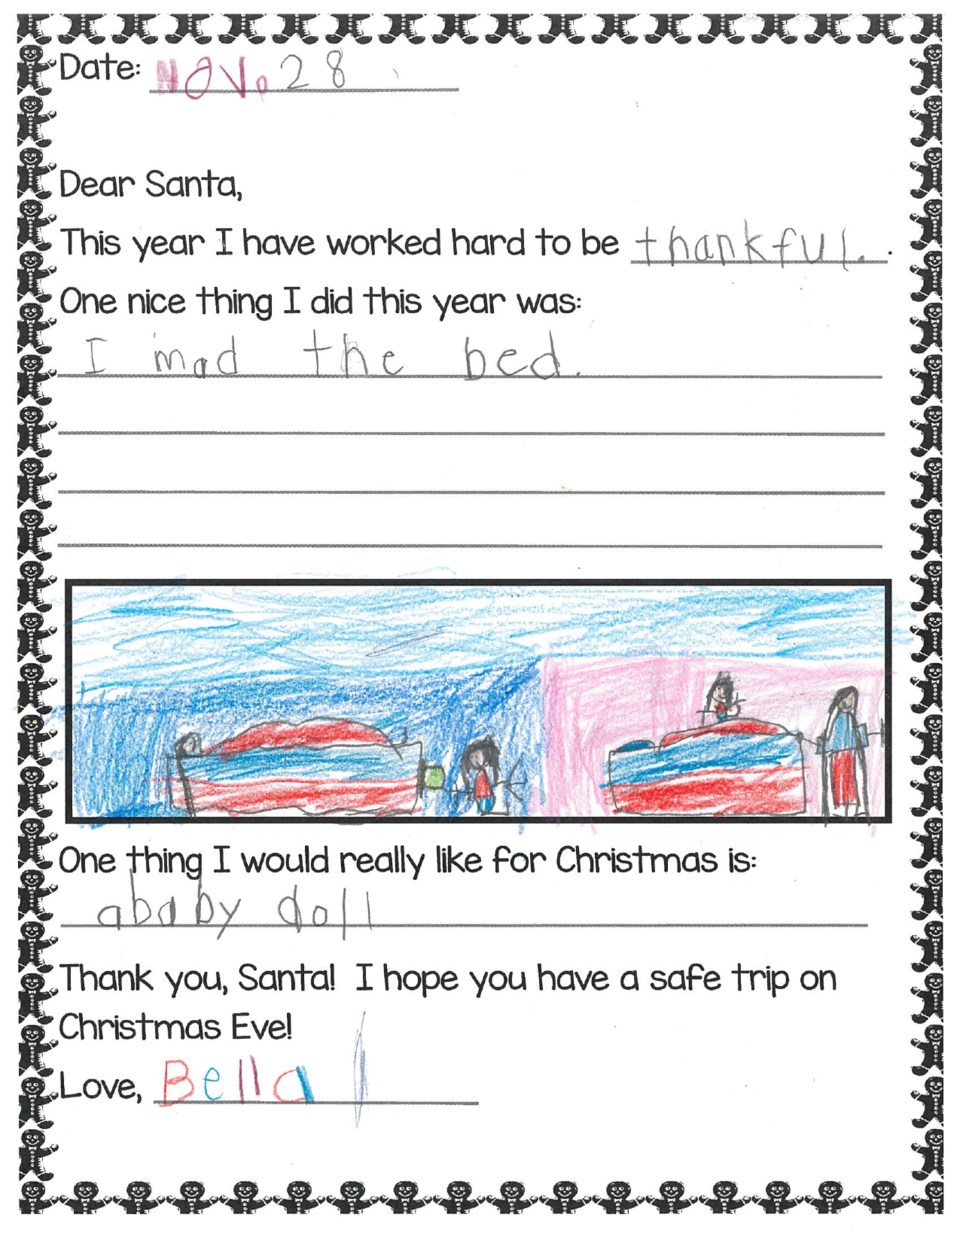 Date: Nov. 28
Dear Santa,
This year I have worked hard to be thankful. .
One nice thing I did this year was:
I mad the bed.
One thing I would really like for Christmas is:
ababy doll
Thank you, Santa! I hope you have a safe trip on
Christmas Eve!
Love, Bella